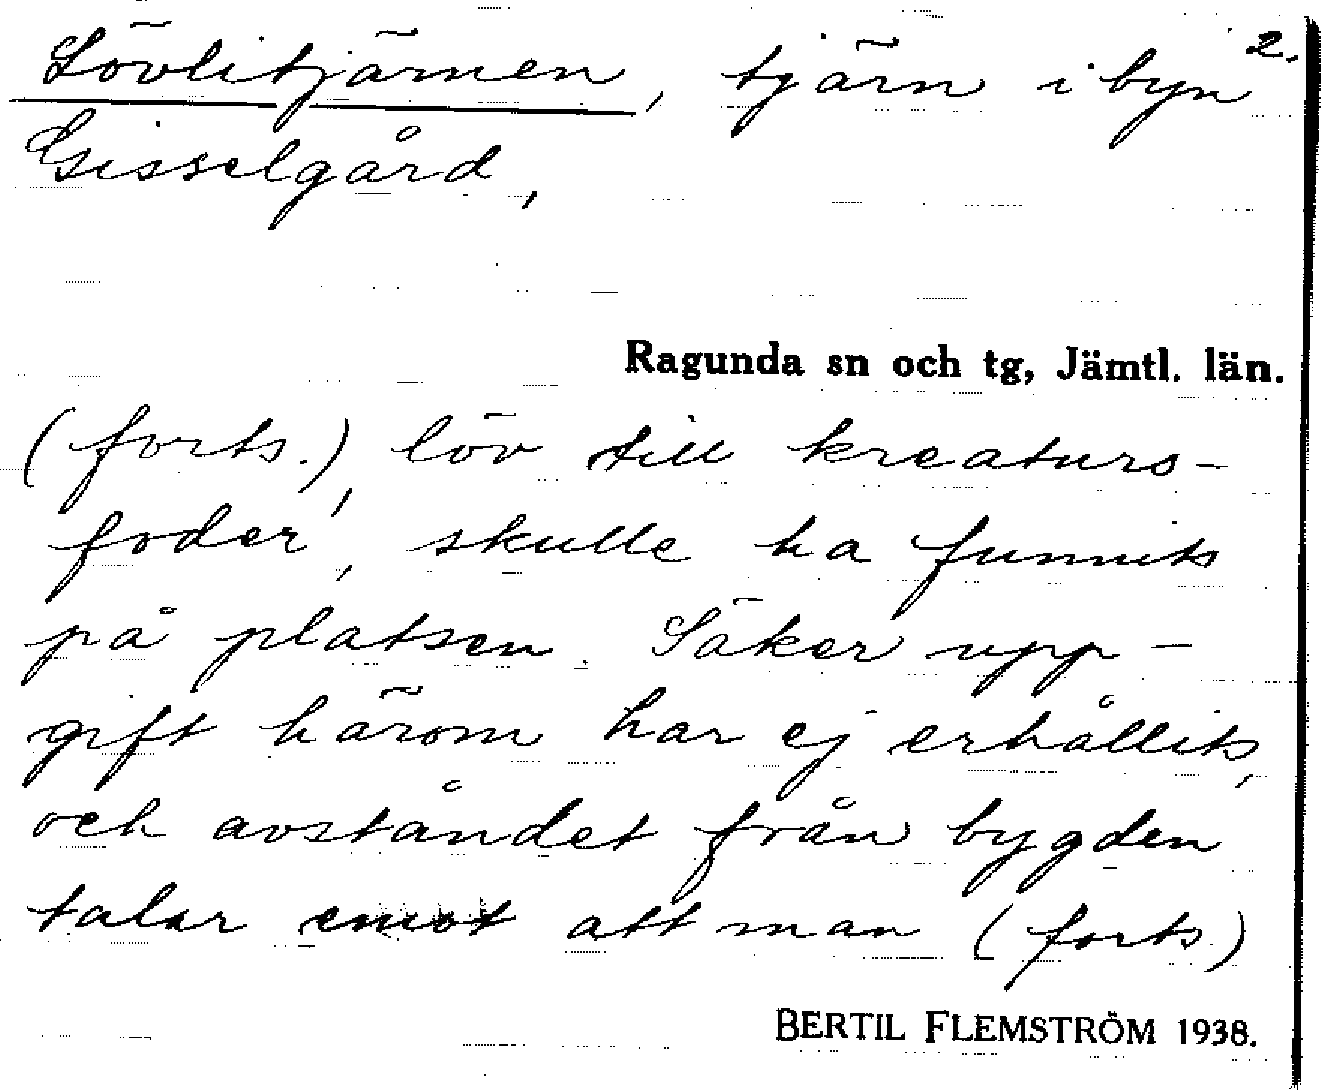 Lövlitjärnen, tjärn i byn 2.
Gisselgård,
Ragunda sn och tg, Jämtl. län.
(forts.) löv till kreaturs-
foder', skulle ha funnits
på platsen. Säker upp-
gift härom har ej erhållits,
och avståndet från bygden
talar emot att man (forts)
BERTIL FLEMSTRÖM 1938.